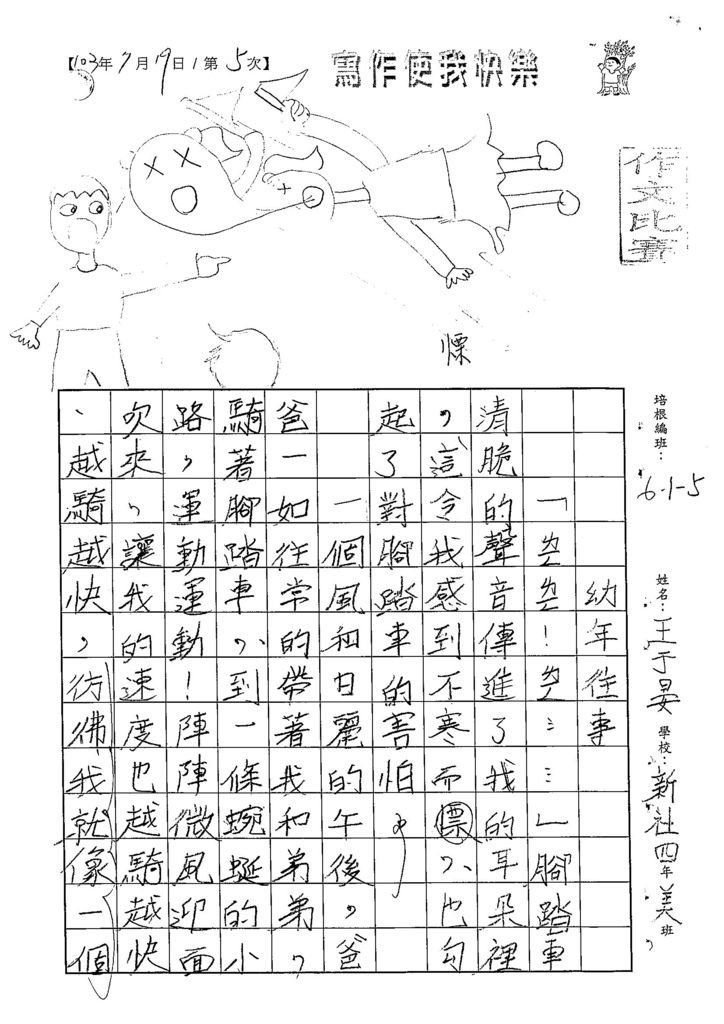 【103年7月19日/第5次】
寫作使我快樂
作文比賽
培根編班：6-1-5
姓名：王于晏 學校：新社四年美班
慄
幼年往事
「空空！空……」腳踏車
清脆的聲音傳進了我的耳朵裡
，這令我感到不寒而慓，也勾
起了對腳踏車的害怕。
一個風和日麗的午後，爸
爸一如往常的帶著我和弟弟，
騎著腳踏車，到一條蜿蜒的小
路，運動運動！陣陣微風迎面
吹來，讓我的速度也越騎越快
、越騎越快，彷彿我就像一個